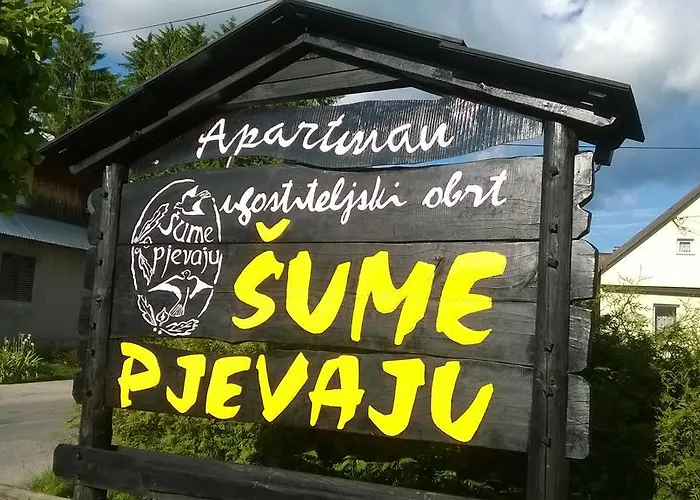 Apartman
ugostiteljski obrt
Šume
pjevaju
ŠUME
PJEVAJU